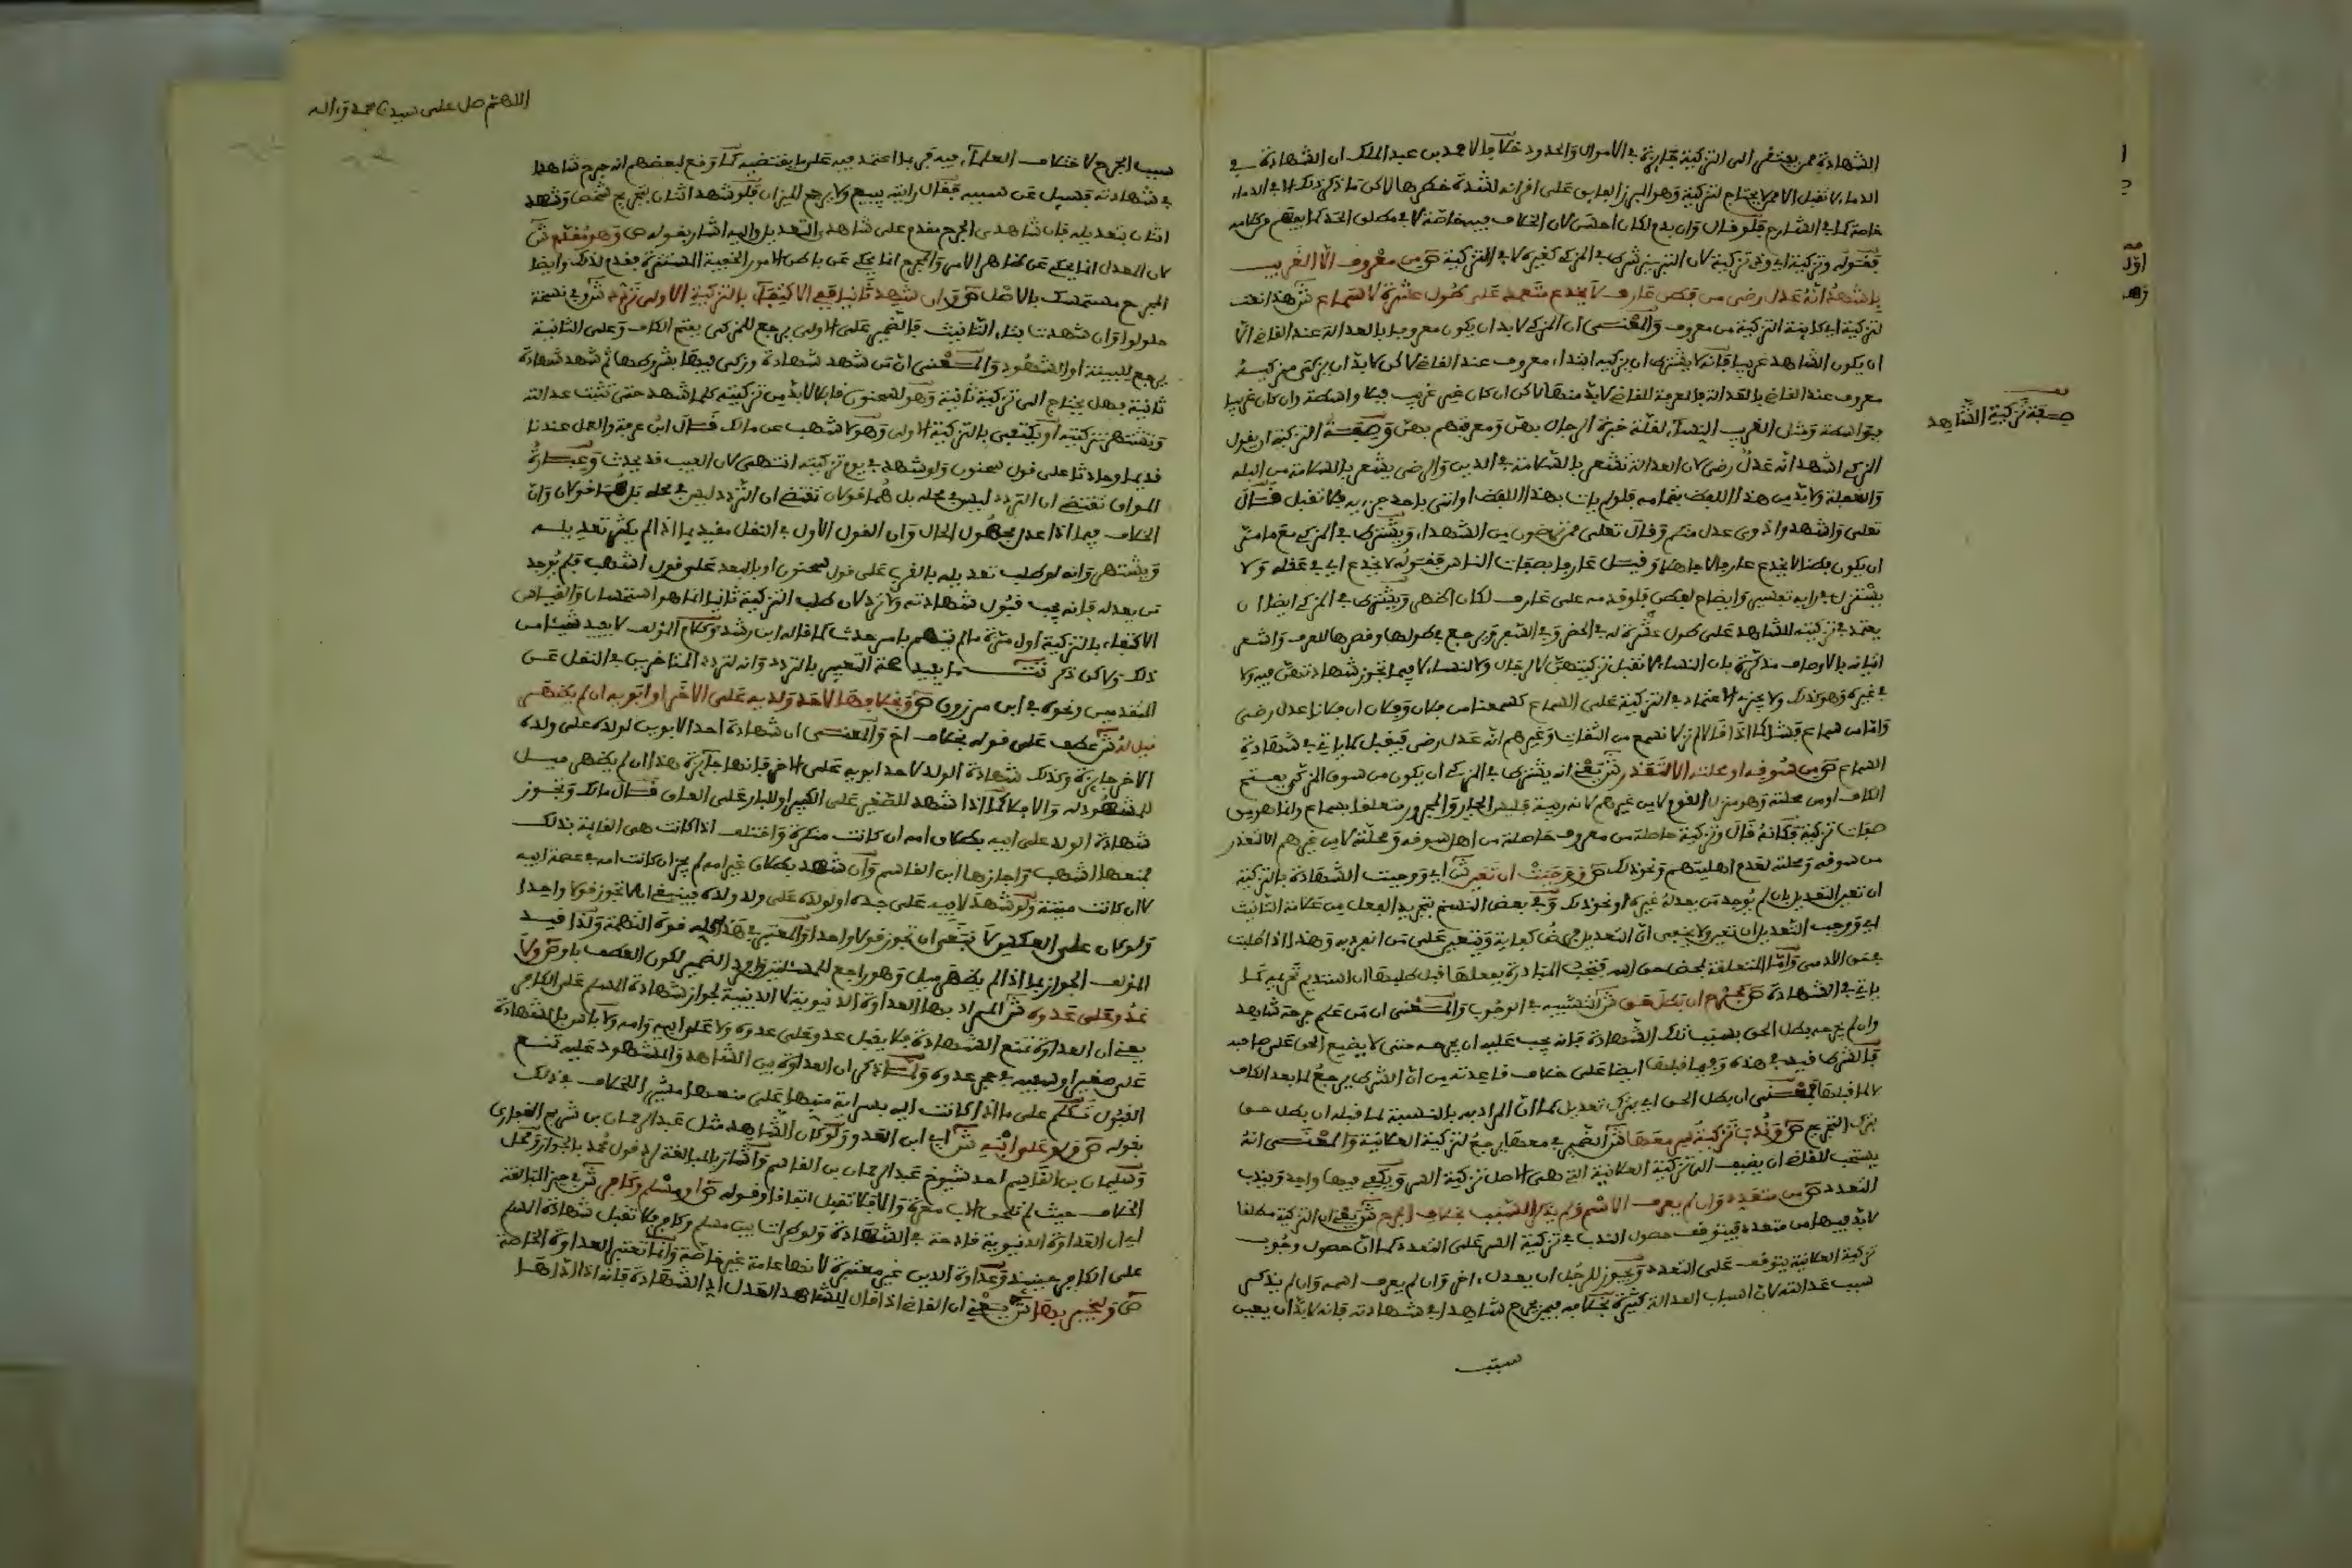 الشهادة ممن يفتقر الى التزكية جايزة في الاموال والحدود خلافا لاحمد بن عبد الملك ان الشهادة في
الدماء لا تقبل الا ممن لا يحتاج لتزكية وهو المبرز العايق على اقرانه لشدة خطرها لاكن ما ذكر ذلك الا في الدماء
خاصة كما في الشارح فلو قال وان بدم لكان احسن لان الخلاف فيه خاصة لا في مطلق الحد كما يفهم من كلامه
فقوله وتزكية اي وفي تزكية لان التبريز شرط في المزكي كغيره لا في التزكية ص من معروف الا الغريب
باشهد انه عدل رضى من فطن عارف لا يخدع معتمد على طول عشرة لا سماع ش هذا نعت
لتزكية اي كاينة التزكية من معروف والمعنى ان المزكي لا بد ان يكون معروفا بالعدالة عند القاضي الا
ان يكون الشاهد غريبا فانه لا يشترط ان يزكيه ابتداء معروف عند القاضي لاكن لا بد ان يزكى مزكيه
معروف عند القاضي بالعدالة فالمعرفة للقاضي لا بد منها لاكن ان كان غير غريب فبلا واسطة وان كان غريبا
فبواسطة ومثل الغريب النساء لقلة خبرة الرجال بهن ومعرفتهم بهن وصيغة التزكية ان يقول
المزكي اشهد انه عدل رضى لان العدالة تشعر بالسلامة في الدين والرضى يشعر بالسلامة من البله
والغفلة ولا بد من هذا اللفظ بتمامه فلو لم يات بهذا اللفظ او اتى باحد جزءيه فلا تقبل قال
تعلى واشهدوا ذوي عدل منكم وقال تعلى ممن ترضون من الشهداء ويشترط في المزكي مع ما مر
ان يكون فطنا لا يخدع عارفا لا جاهلا وقيل عارفا بصفات الناس فقوله لا يخدع اي في عقله ولا
يستزل في رايه تفسير وايضاح لفطن فلو قدمه على عارف لكان اظهر ويشترط في المزكي ايضا ان
يعتمد في تزكيته للشاهد على طول عشرة له في الحضر وفي السفر ويرجع في طولها وقصرها للعرف واشعر
اتيانه بالاوصاف مذكرة بان النساء لا تقبل تزكيتهن لا لرجال ولا لنساء لا فيما تجوز شهادتهن فيه ولا
في غيره وهو كذلك ولا يجزيه الاعتماد في التزكية على السماع كسمعنا من فلان وفلان ان فلانا عدل رضى
واما من سماع فشا كما اذا قالا لم نزل نسمع من الثقات وغيرهم انه عدل رضى فيقبل كما ياتي في شهادة
السماع ص من سوقه او محلته الا لتعذر ش يعني انه يشترط في المزكي ان يكون من سوق المزكى بفتح
الكاف او من محلته وهو منزل القوم لا من غيرهم لانه ريبة فليس الجار والمجرور متعلقا بسماع وانما هو من
صفات تزكية فكانه قال وتزكية حاصلة من معروف حاصلة من اهل سوقه ومحلته لا من غيرهم الا لتعذر
من سوقه ومحلته لعدم اهليتهم ونحو ذلك ص ووجبت ان تعين ش اي ووجبت الشهادة بالتزكية
ان تعين التعديل بان لم يوجد من يعدله غيره او نحو ذلك وفي بعض النسخ بتجريد الفعل من علامة التانيث
اي ووجب التعديل ان تعين ولا يخفى ان التعديل فرض كفاية ويتعين على من انفرد به وهذا اذا طلبت
في حق الادمي واما المتعلقة بمحض حق الله فتجب المبادرة بفعلها قبل طلبها ان استديم تحريمه كما
ياتي في الشهادة ص كجرح ان بطل حق ش التشبيه في الوجوب والمعنى ان من علم جرحة شاهد
وان لم يجرحه بطل الحق بسبب تلك الشهادة فانه يجب عليه ان يجرحه حتى لا يضيع الحق على صاحبه
فالشرط قيد في هذه وفيما قبلها ايضا على خلاف قاعدته من ان الشرط يرجع لما بعد الكاف
لا لما قبلها فمعنى ان بطل الحق اي بترك تعديل كما ان المراد به بالنسبة لما قبله ان بطل حق
بترك التجريح ص وندب تزكية سر معها ش الضمير في معها يرجع لتزكية العلانية والمعنى انه
يستحب للقاضي ان يضيف الى تزكية العلانية التي هي الاصل تزكية السر ويكفي فيها واحد ويندب
التعدد ص من متعدد وان لم يعرف الاسم ولم يذكر السبب بخلاف الجرح ش يعني ان التزكية مطلقا
لا بد فيها من متعدد فيتوقف حصول الندب في تزكية السر على التعدد كما ان حصول وجوب
تزكية العلانية يتوقف على التعدد ويجوز للرجل ان يعدل اخر وان لم يعرف اسمه وان لم يذكر
سبب عدالته لان اسباب العدالة كثيرة بخلاف من يجرح شاهدا في شهادته فانه لا بد ان يعين
سبب
صيغة تزكية الشاهد
اللهم صل على سيدنا محمد وءاله
سبب الجرح لاختلاف العلماء فيه فربما اعتمد فيه على ما لا يقتضيه كما وقع لبعضهم انه جرح شاهدا
في شهادته فسيل عن سببه فقال رايته يبيع ولا يرجح الميزان فلو شهد اثنان بتجريح شخص وشهد
اثنان بتعديله فان شاهدي الجرح مقدم على شاهدي التعديل واليه اشار بقوله ص وهو مقدم ش
لان المعدل انما يحكي عن ظاهر الامر والمجرح انما يحكي عن باطن الامور الخفية المستترة فقدم لذلك وايضا
المجرح مستمسك بالاصل ص وان شهد ثانيا ففي الاكتفاء بالتزكية الاولى تردد ش وفي نسخة
حلولوا وان شهدت بتاء التانيث فالضمير على الاولى يرجع للمزكى بفتح الكاف وعلى الثانية
يرجع للبينة او الشهود والمعنى ان من شهد شهادة وزكي فيها بشروطها ثم شهد شهادة
ثانية فهل يحتاج الى تزكية ثانية وهو لسحنون قايلا لا بد من تزكيته كلما شهد حتى تثبت عدالته
وتشتهر تزكيته او يكتفى بالتزكية الاولى وهو لاشهب عن مالك قال ابن عرفة والعمل عندنا
قديما وحديثا على قول سحنون ولو شهد في يوم تزكيته انتهى لان الغيب قد يحدث وعبارة
المواق تقتضي ان التردد ليس في محله بل هما قولان
الخلاف فيما اذا عدل مجهول الحال وان القول الاول في النقل مقيد بما اذا لم يكثر تعديله
ويشتهر وانه لو طلب تعديله بالقرب على قول سحنون او بالبعد على قول اشهب فلم يوجد
من يعدله فانه يجب قبول شهادته ولا ترد لان طلب التزكية ثانيا انما هو استحسان والقياس
الاكتفاء بالتزكية اول مرة ما لم يتهم بامر حدث كما قاله ابن رشد وكلام المؤلف لا يفيد شيئا من
ذلك ولاكن ذكر تت ما يفيد صحة التعبير بالتردد وانه لتردد المتاخرين في النقل عن
المتقدمين ونحوه في ابن مرزوق ص وبخلافها لاحد ولديه على الاخر او ابويه ان لم يظهر
ميل له ش عطف على قوله بخلاف اخ والمعنى ان شهادة احد الابوين لولده على ولده
الاخر جايزة وكذلك شهادة الولد لاحد ابويه على الاخر فانها جايزة هذا ان لم يظهر ميل
للمشهود له والا فلا كما اذا شهد للصغير على الكبير او للبار على العاق قال مالك وتجوز
شهادة الولد على ابيه بطلاق امه ان كانت منكرة واختلف اذا كانت هي القايمة بذلك
فمنعها اشهب واجازها ابن القاسم وان شهد بطلاق غير امه لم يجز ان كانت امه في عصمة ابيه
لا ان كانت ميتة ولو شهد لابيه على جده او لولده على ولد ولده فينبغي الا تجوز قولا واحدا
ولو كان على العكس لانبغى ان تجوز قولا واحدا والمعتبر في هذا كله قوة التهمة ولذا قيد
المؤلف الجواز بما اذا لم يظهر ميل وهو راجع للمسئلتين وافرد الضمير لكون العطف باو ص ولا
عدو على عدوه ش المراد بها العداوة الدنيوية لا الدينية لجواز شهادة المسلم على الكافر
يعني ان العداوة تمنع الشهادة فلا يقبل عدو على عدوه ولا على ابيه وامه ولا باس بالشهادة
على صغير او سفيه في حجر عدوه ولما ذكر ان العداوة بين الشاهد والمشهود عليه تمنع
القبول تكلم على ما اذا كانت اليه بسراية منبها على منعها مشيرا للخلاف في ذلك
بقوله ص ولو على ابنه ش اي ابن العدو ولو كان الشاهد مثل عبد الرحمان بن شريح
وسليمان بن القاسم احد شيوخ عبد الرحمان بن القاسم واشار بالمبالغة لرد قول محمد بالجواز ومحل
الخلاف حيث لم تلحق الاب معرة والا فلا تقبل اتفاقا وقوله ص او مسلم وكافر ش في حيز المبالغة
اي ان العداوة الدنيوية قادحة في الشهادة ولو طرات بين مسلم وكافر فلا تقبل شهادة المسلم
على الكافر حينيذ وعداوة الدين غير معتبرة لانها عامة غير خاصة وانما تعتبر العداوة الخاصة
ص وليخبر بها ش يعني ان القاضي اذا قال للشاهد العدل اد الشهادة فانه اذا اداها